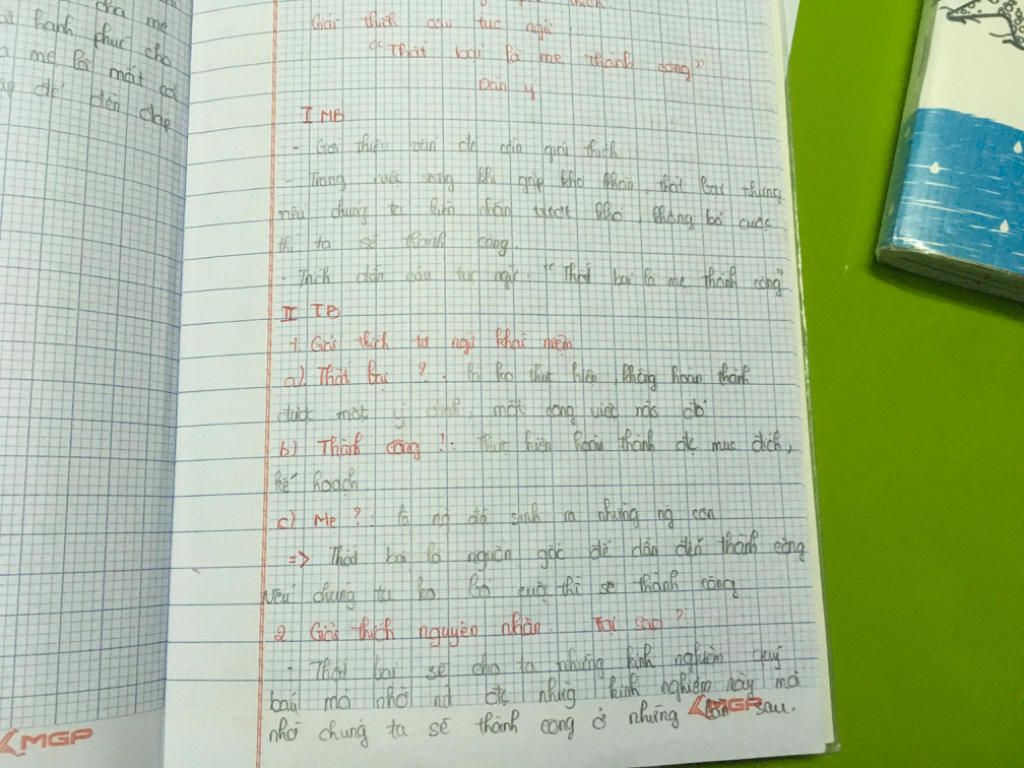 cha mẹ
hạnh phúc cho
mẹ là mất cả
để đền đáp
thích
Giải thích câu tục ngữ
"Thất bại là mẹ thành công"
Dàn ý
I MB
- Giới thiệu vấn đề cần giải thích
- Trong cuộc sống khi gặp khó khăn, thất bại nhưng
nếu chúng ta kiên nhẫn vượt khó, không bỏ cuộc
thì ta sẽ thành công.
- Trích dẫn câu tục ngữ: "Thất bại là mẹ thành công"
II TB
1. Giải thích từ ngữ khái niệm
a) Thất bại ? - là ko thực hiện, không hoàn thành
được một ý định, một công việc nào đó
b) Thành công ?: Thực hiện hoàn thành đc mục đích,
kế hoạch
c) Mẹ ? là ng đã sinh ra những ng con
=> Thất bại là nguồn gốc để dẫn đến thành công
Nếu chúng ta ko bỏ cuộc thì sẽ thành công
2. Giải thích nguyên nhân. Tại sao ?
- Thất bại sẽ cho ta những kinh nghiệm quý
báu mà nhờ nó đc những kinh nghiệm này mà
nhờ chúng ta sẽ thành công ở những lần sau.
MGP
MGP